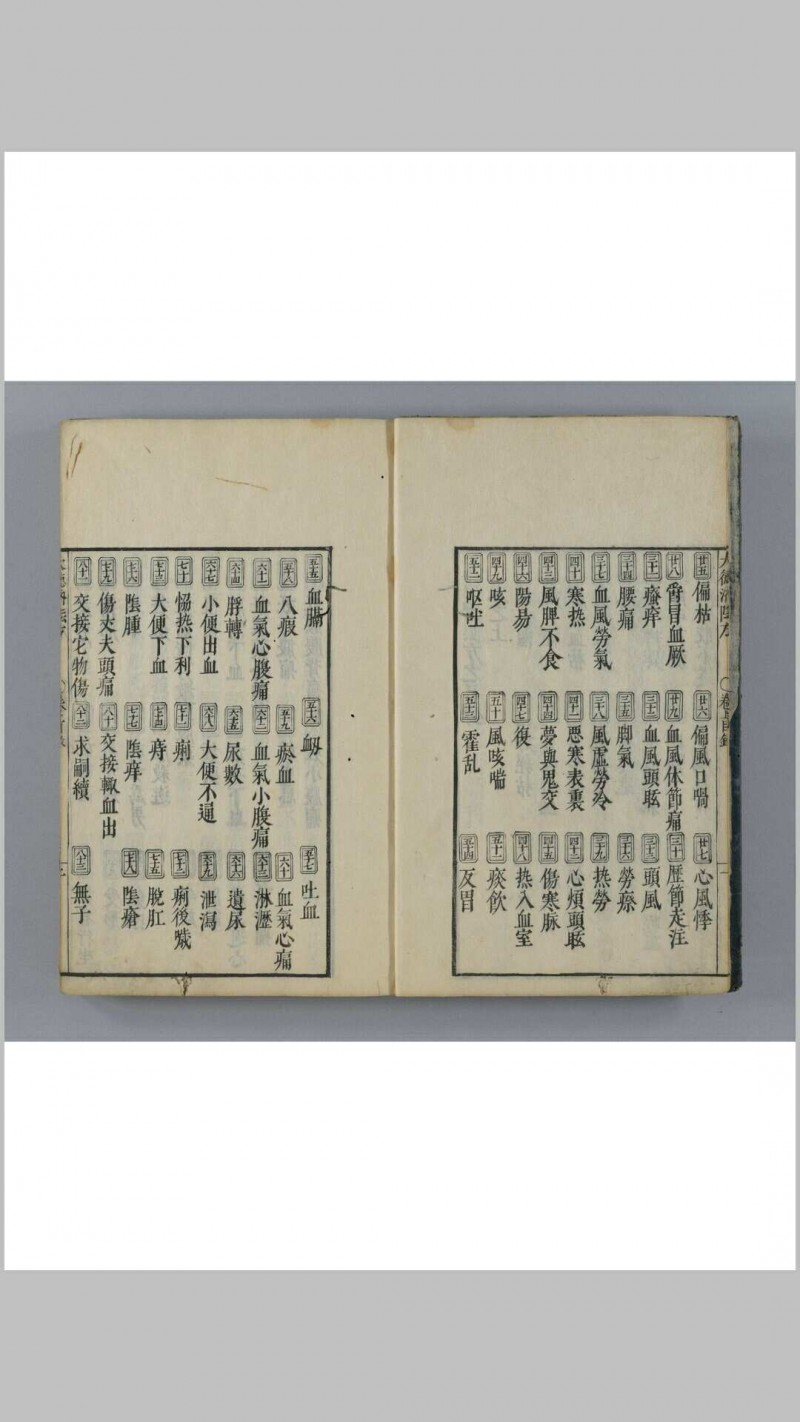 廿五 偏枯 廿六 偏風口喎 廿七 心風悸
廿八 瞀冒血厥 廿九 血風体節痛 三十 歷節走注
三十一 瘙痒 三十二 血風頭眩 三十三 頭風
三十四 腰痛 三十五 脚氣 三十六 勞瘵
三十七 血風勞氣 三十八 風虛勞冷 三十九 热勞
四十 寒热 四十一 惡寒表裏 四十二 心煩頭眩
四十三 風脾不食 四十四 夢與鬼交 四十五 傷寒脉
四十六 陽昜 四十七 復 四十八 热入血室
四十九 咳 五十 風咳喘 五十一 痰飲
五十二 呕吐 五十三 霍乱 五十四 反胃
五十五 血膈 五十六 衂 五十七 吐血
五十八 八瘕 五十九 瘀血 六十 血氣心痛
六十一 血氣心腹痛 六十二 血氣小腹痛 六十三 淋瀝
六十四 脬轉 六十五 尿數 六十六 遺尿
六十七 小便出血 六十八 大便不通 六十九 泄瀉
七十 恊热下利 七十一 痢 七十二 痢後
七十三 大便下血 七十四 痔 七十五 脫肛
七十六 陰腫 七十七 陰痒 七十八 陰瘡
七十九 傷丈夫頭痛 八十 交接輙血出
八十一 交接它物傷 八十二 求嗣續 八十三 無子